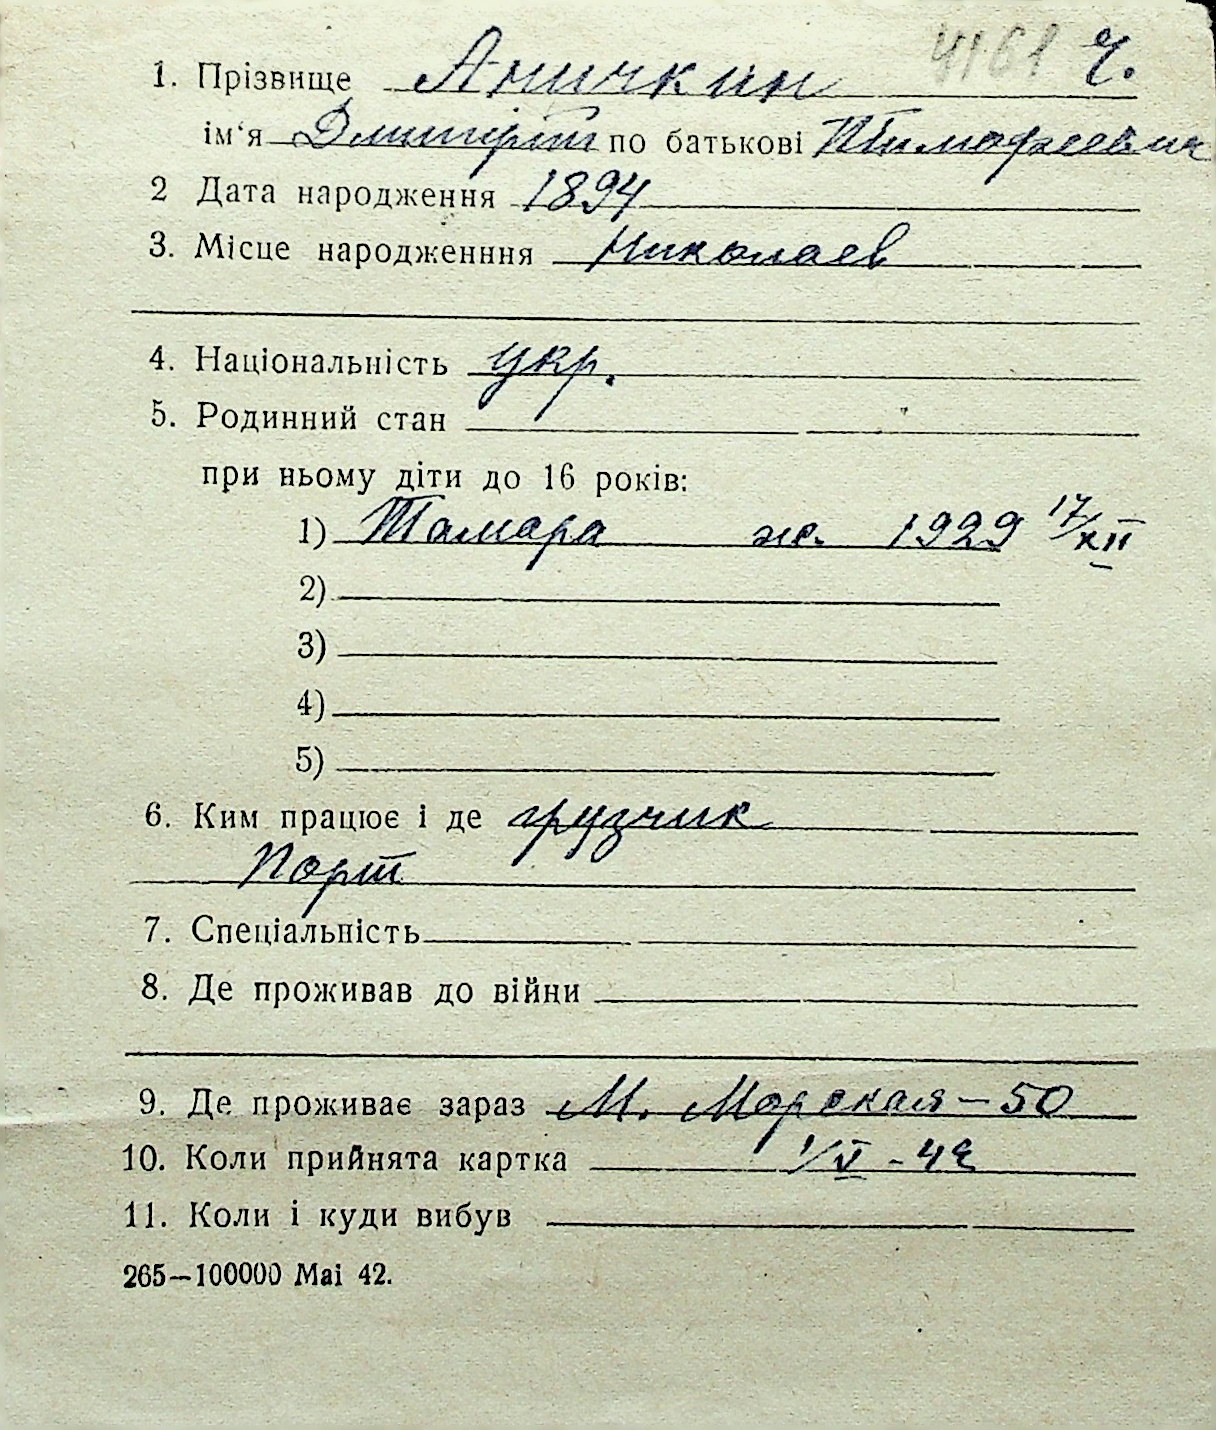 4161 Ч.
1. Прізвище Аничкин
ім‘я Дмитрий по батькові Тимофеевич
2 Дата народження 1894
3. Місце народженння Николаев
4. Національність укр.
5. Родинний стан
при ньому діти до 16 років:
1) Тамара ж. 1929 17/XII
2)
3)
4)
5)
6. Ким працює і де грузчик
Порт
7. Спеціальність
8. Де проживав до війни
9. Де проживає зараз М. Морская – 50
10. Коли прийнята картка 1/V - 42
11. Коли і куди вибув
265—100000 Mai 42.